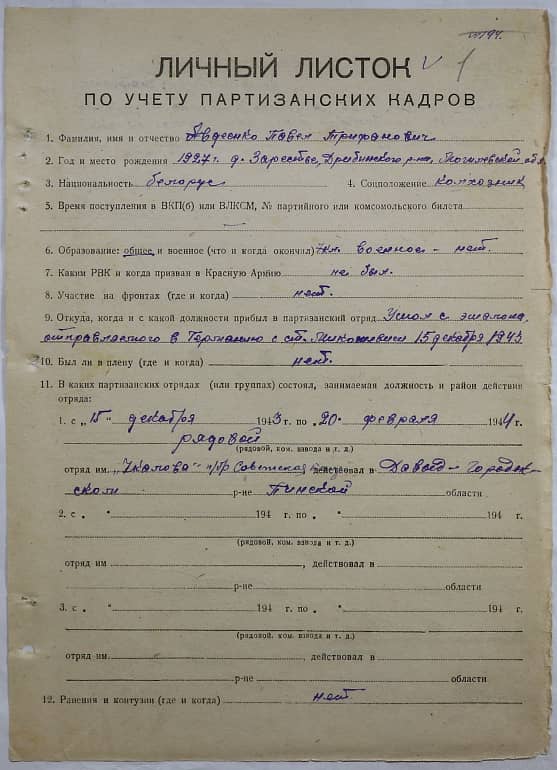 194
ЛИЧНЫЙ ЛИСТОК
1
ПО УЧЕТУ ПАРТИЗАНСКИХ КАДРОВ
1. Фамилия, имя и отчество Авдеенко Павел Трифанович
2. Год и место рождения 1927г. д. Зарестье, Дрибинского р-на, Могилевской обл
3. Национальность белорус 4. Соцположение колхозник
5. Время поступления в ВКП(б) или ВЛКСМ, № партийного или комсомольского билета
6. Образование: общее и военное (что и когда окончил) 7кл. военное - нет.
7. Каким РВК и когда призван в Красную Армию не был.
8. Участие на фронтах (где и когда) нет.
9. Откуда, когда и с какой должности прибыл в партизанский отряд Ушол с эшалона,
отправластого в Германию с ст. Микашевичи 15 декабря 1943
10. Был ли в плену (где и когда) нет.
11. В каких партизанских отрядах (или группах) состоял, занимаемая должность и район действия
отряда:
1. с „15" декабря 1943 г. по „20" февраля 1944 г.
рядовой
(рядовой, ком. взвода и т. д.)
отряд им. „Чкалова" п/бр Советская действовал в Давыд-Городок-
ском р-не Пинской области
2. с „ " 194 г. по „ " 194 г.
(рядовой, ком. взвода и т. д.)
отряд им , действовал в
р-не области
3. с „ " 194 г. по „ " 194 г.
(рядовой, ком. взвода и т. д.)
отряд им. , действовал в
р-не области
12. Ранения и контузии (где и когда) нет